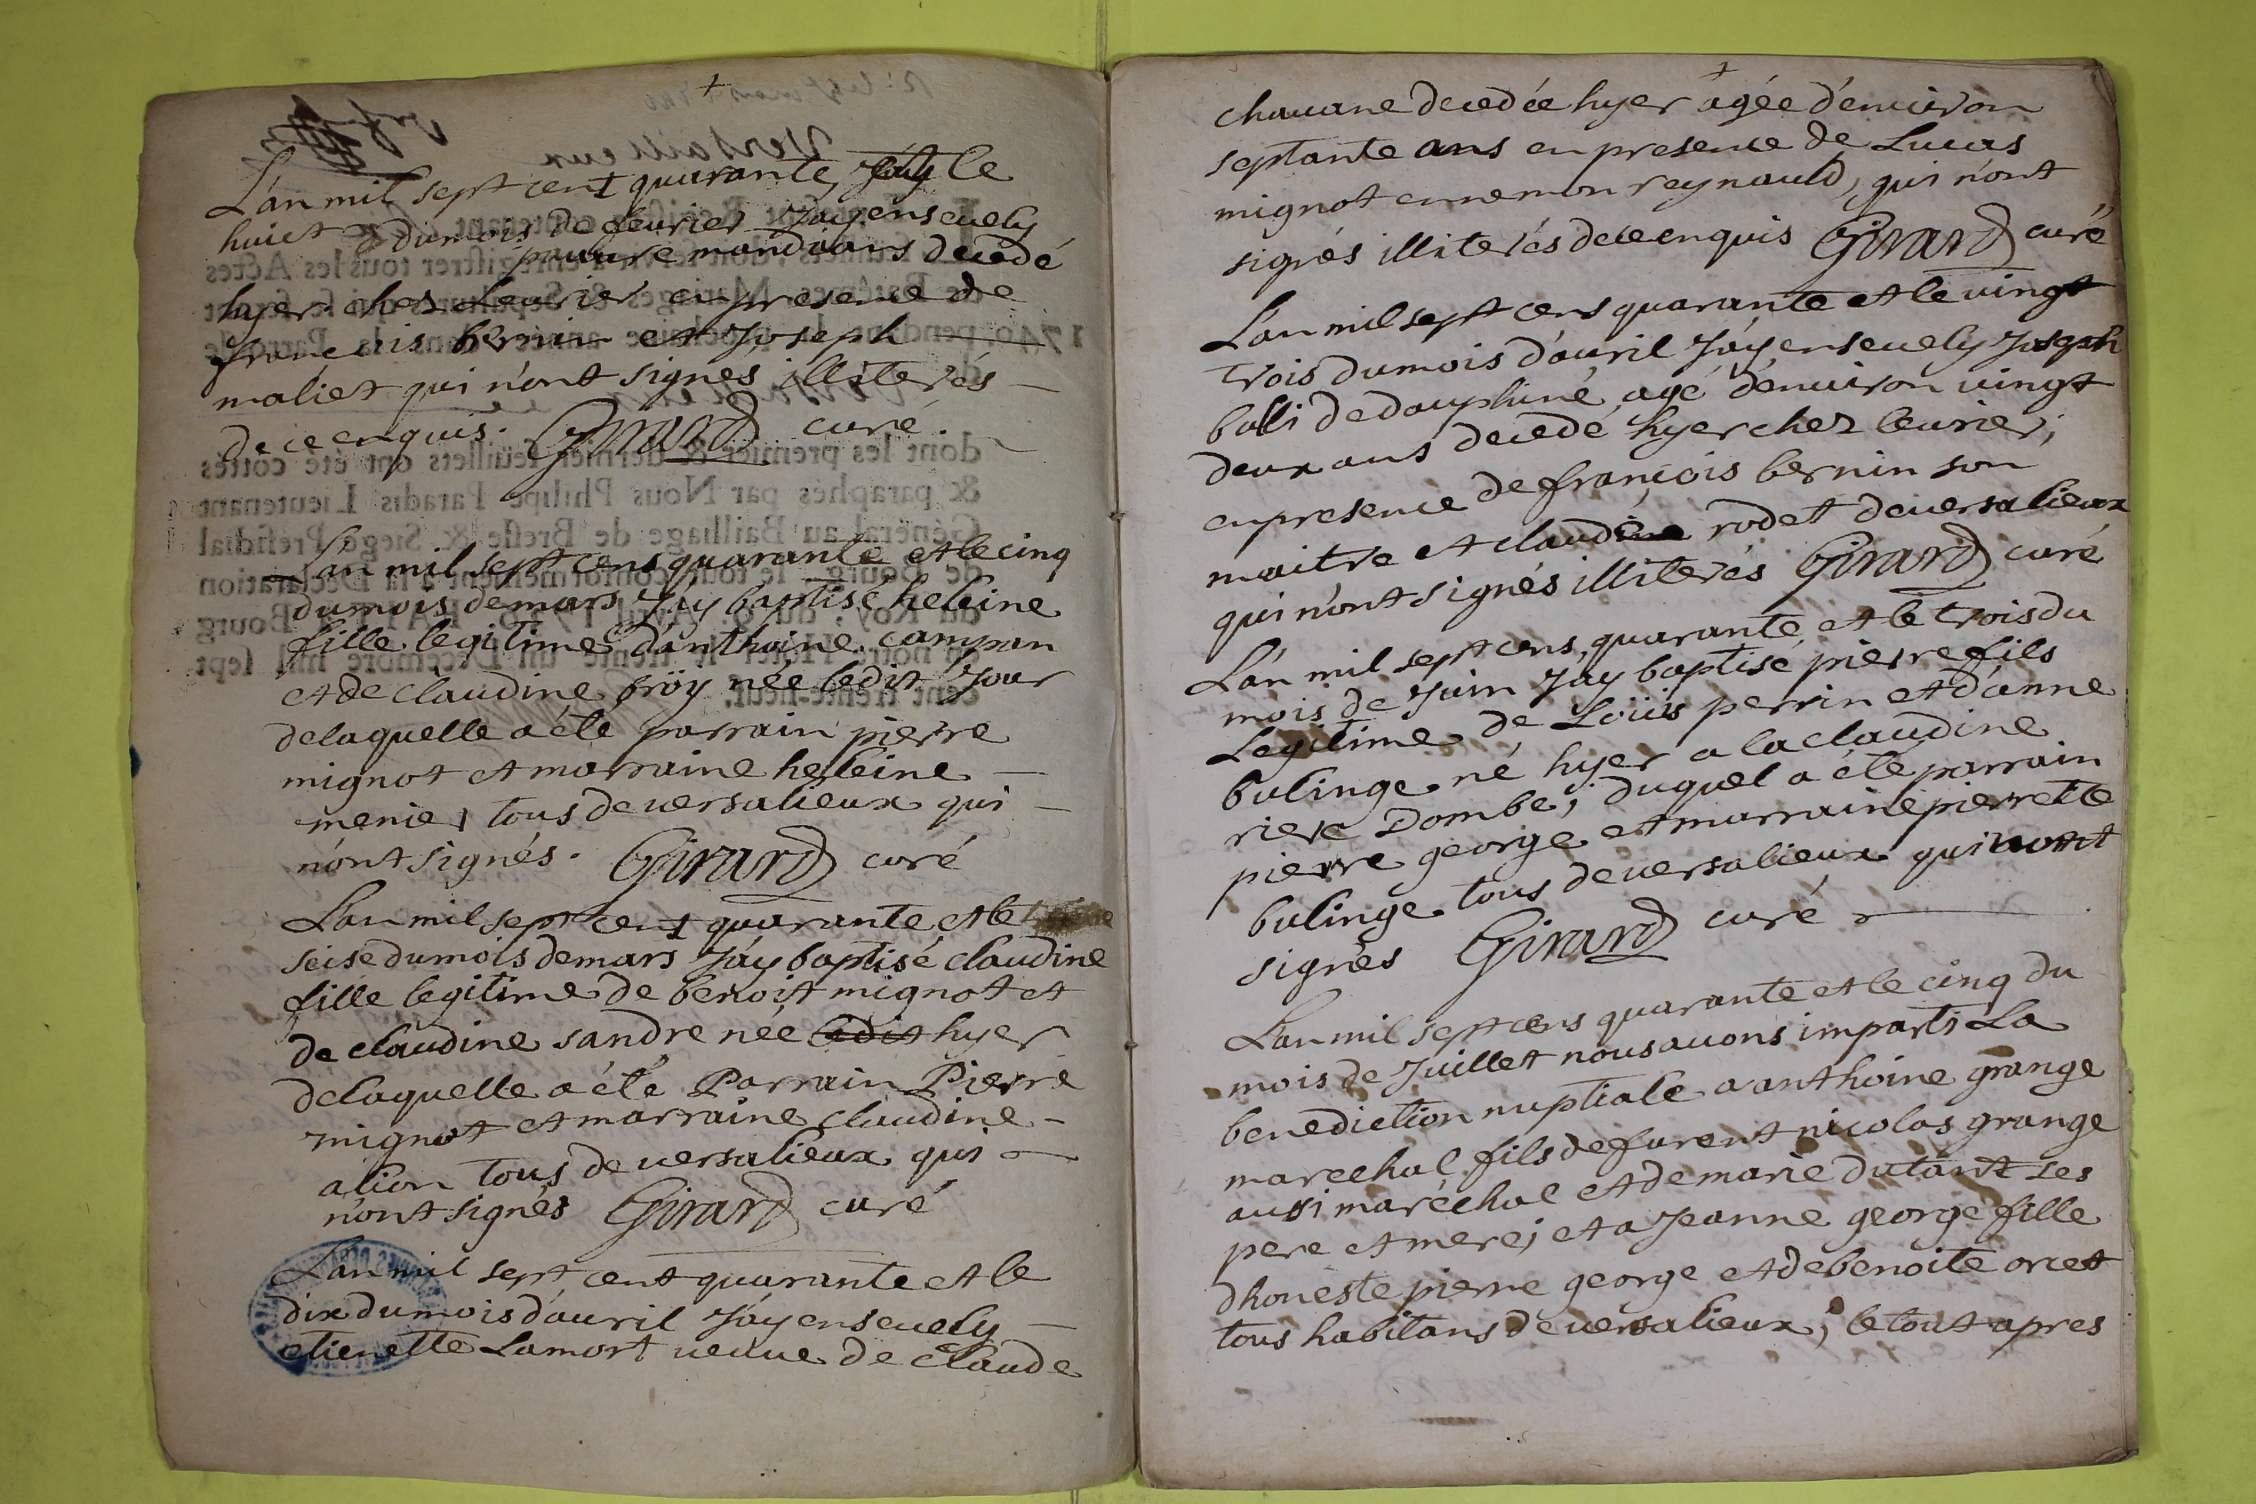 L'an mil sept cent quarante, le
huict dumois de feurier J'ay enseuely
pauure mandians decedé
hyer ches Leurier en presence de
francois bernin et Joseph
maliet qui n'ont signés illiterés
de ce enquis. Girard curé.
L'an mil sept cens quarante et le cinq
dumois de mars J'ay baptisé heleine
fille legitime d'anthoine campan
et de claudine froy née ledit Jour
delaquelle a été parrain pierre
mignot et marraine heleine
menier tous de uersalieux qui
n'ont signés. Girard curé
L'an mil sept cent quarante et le
seise dumois demars J'ay baptisé claudine
fille legitime de benoist mignot et
de claudine sandre née ledit hyer
delaquelle a été Parrain Pierre
mignot et marraine claudine
alion tous de uersalieux qui
n'ont signés Girard curé
L'an mil sept cent quarante et le
dix dumois d'auril J'ay enseuely
etienette Lamort ueuue de claude
chauane decedée hyer agée d'enuiron
septante ans en presence de Lucas
mignot ennemon reynauld, qui n'ont
signés illiterés de ce enquis Girard curé
L'an mil sept cens quarante et le vingt
trois dumois d'auril J'ay enseuely Joseph
balli de dauphiné agé d'enuiron vingt
deux ans decedé hyer chez leurier,
en presence de françois bernin son
maitre et claudine rodet de uersalieux
qui n'ont signés illiterés Girard curé
L'an mil sept cens quarante et le trois du
mois de Juin J'ay baptisé pierre fils
Legitime de Loüis perrin et d'anne
bulinge né hyer a la claudine
riere Dombe; duquel a été parrain
pierre george et marraine pierrette
bulinge tous de uersalieux qui n'ont
signés Girard curé
L'an mil sept cens quarante et le cinq du
mois de Juillet nous auons imparti La
benediction nuptiale a anthoine grange
marechal fils de furent nicolas grange
aussi maréchal et de marie dutant ses
pere et mere; et a Jeanne george fille
d'honeste pierre george et de benoite orcet
tous habitans de uersalieux; le tout apres